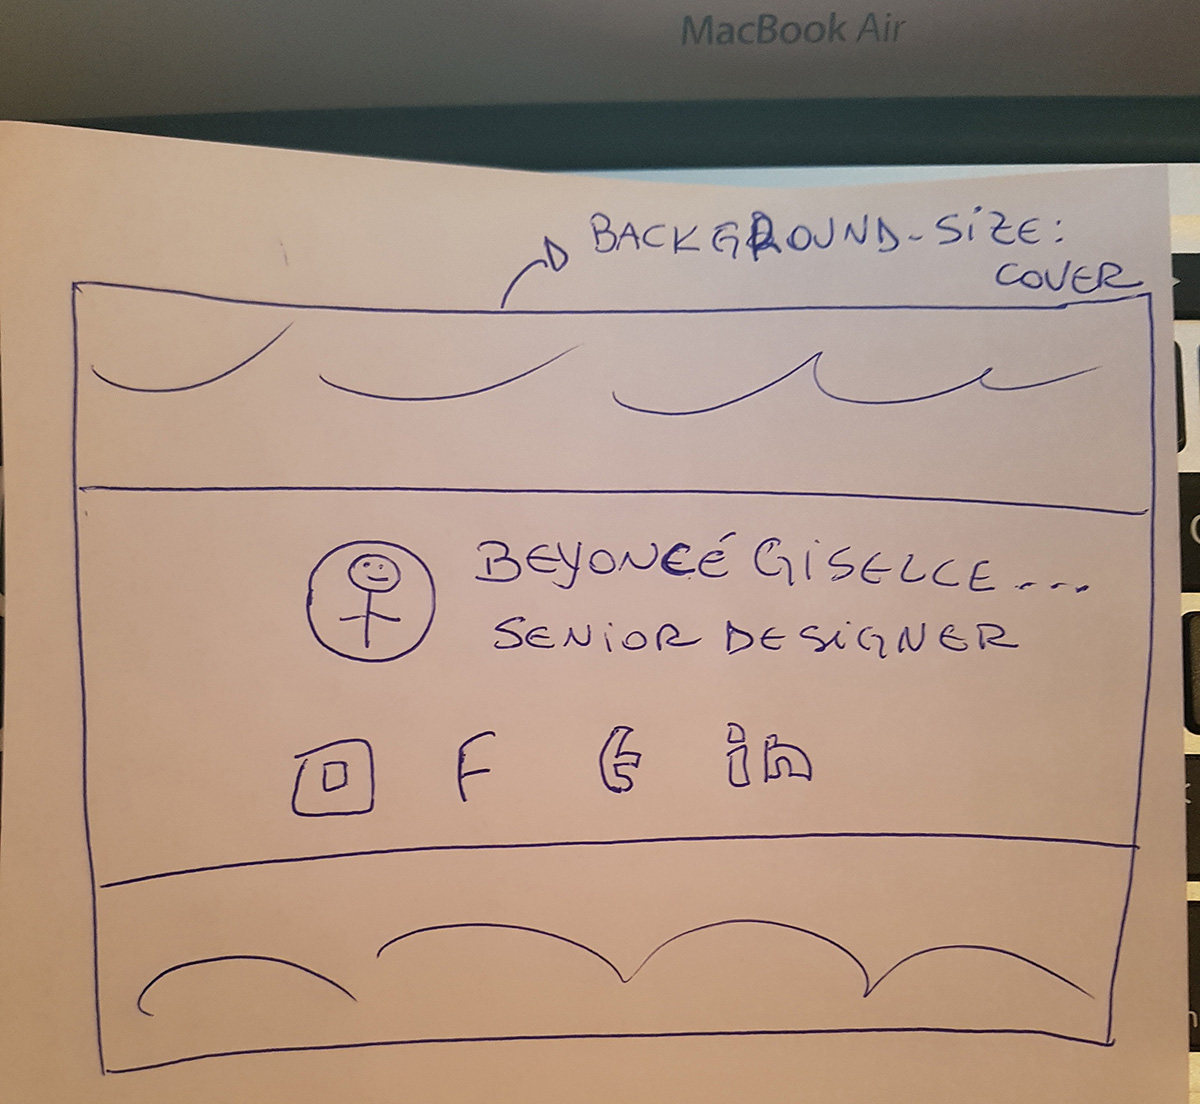 MacBook Air
BACKGROUND-SIZE:
COVER
BEYONCÉ GISELLE...
SENIOR DESIGNER
F t in